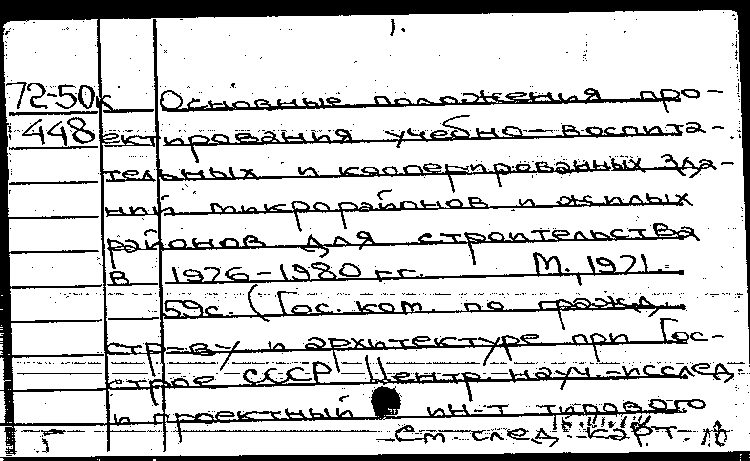 1.
72-50к Основные положения про-
448 ектирования учебно-воспита-
тельных и кооперированных зда-
ний микрорайонов и жилых
районов для строительства
в 1976-1980 гг. М., 1971.
59с. (Гос. ком. по гражд.
стр-ву и архитектуре при Гос-
строе СССР Центр. науч.-исслед.
и проектный ин-т типового
См. след. карт.